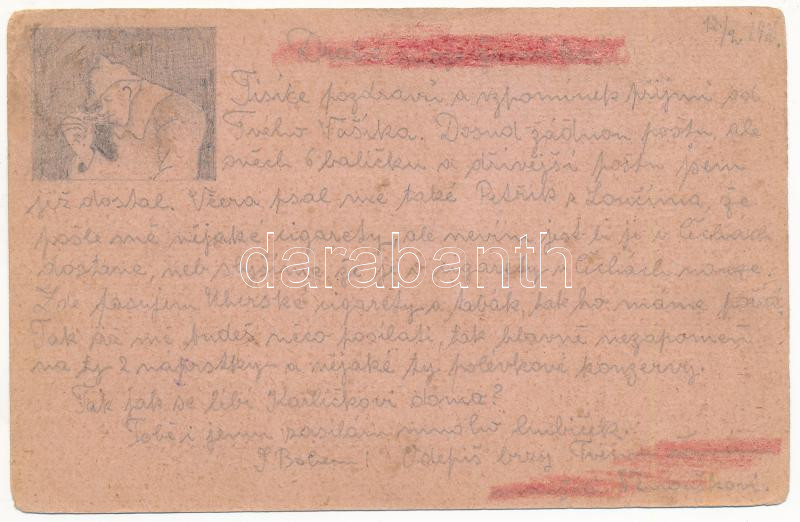 12/2 191
Drahá
Tisíce pozdravů a vzpomínek přijmi od
Tvého Vašíka. Dosud žádnou poštu, ale
všech 6 balíčků a dřívější poštu jsem
již dostal. Včera psal mě také Petřík z Loučína, že
pošle mě nějaké cigarety, ale nevím jest li je v Čechách
dostane, neb slyšíme že je o cigarety v Čechách nouze.
Zde fasujem Uherské cigarety a tabák, tak ho máme
Tak až mě budeš něco posílati, tak hlavně nezapomeň
na ty 2 náprstky a nějaké ty polévkové konzervy.
Tak jak se líbí Karlíčkovi doma?
Tobě i jemu zasílám mnoho hubiček.
S Bohem! Odepiš brzy Tvému
darabanth